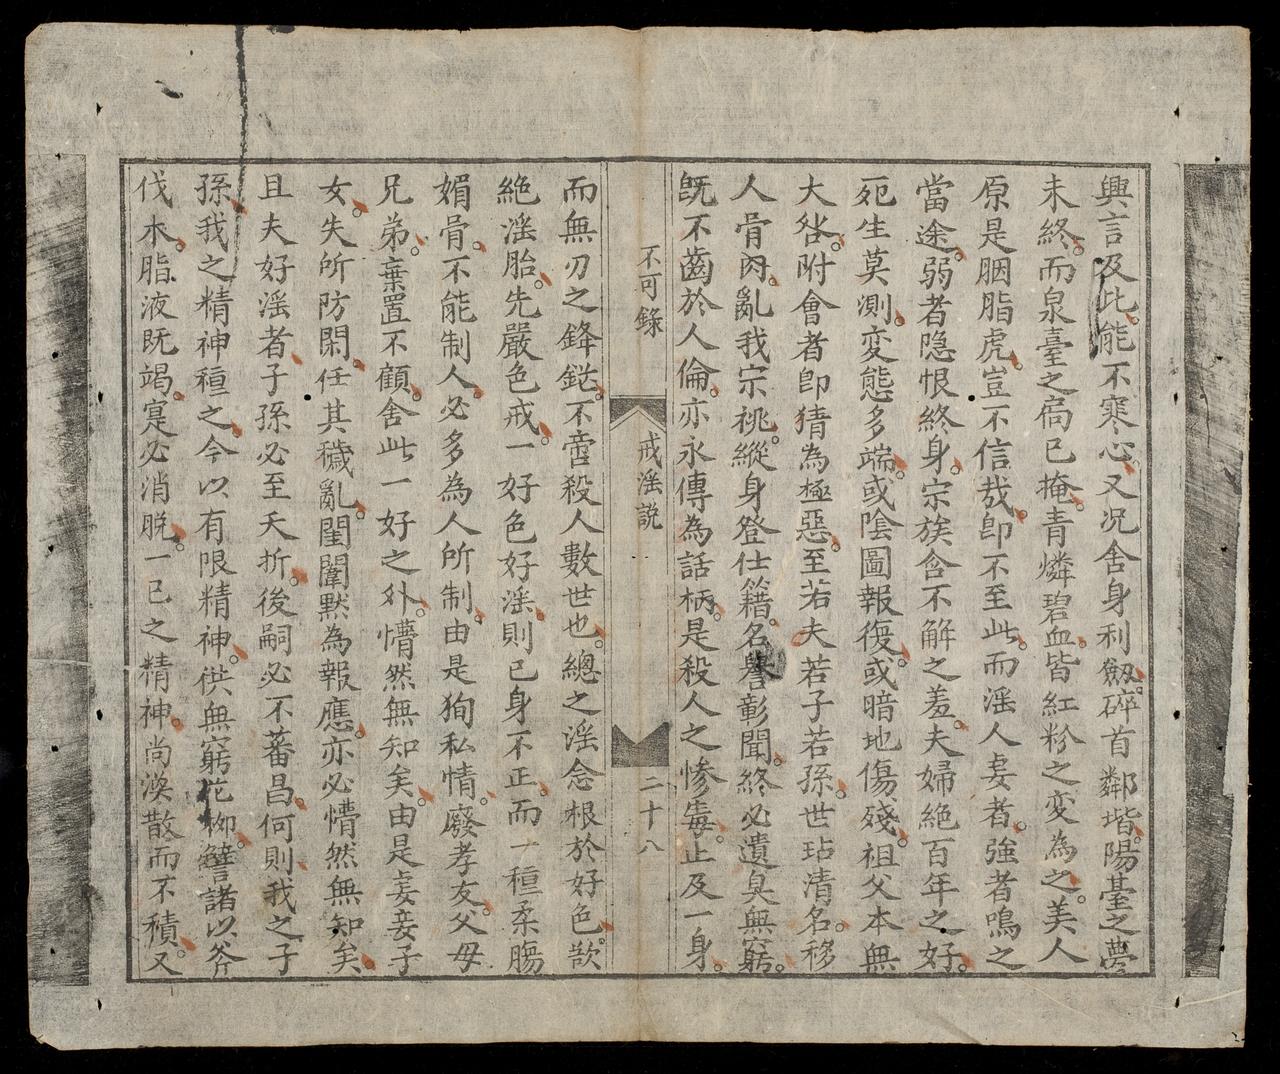 興言及此。能不寒心。又况舍身利劔。碎首鄰堦。陽臺之夢
未終。而泉臺之局已掩。青燐碧血。皆紅粉之変為之。美人
原是胭脂虎。豈不信㦲。卽不至此。而淫人妻者。強者鳴之
當途。弱者隐恨終身。宗族含不解之羞。夫婦絶百年之好。
死生莫測。変態多端。或陰圖報復。或暗地傷殘。祖父本無
大咎。附會者卽猜為極惡。至若夫若子若孫。世玷清名。移
人骨肉。亂我宗祧。縱身登仕籍。名譽彰聞。終必遺臭無窮。
既不齒於人倫。亦永傳為話柄。是殺人之慘毒。止及一身。
不可錄
戒淫説
二十八
而無刃之鋒鋩。不啻殺人數世也。總之淫念根於好色。欲
絶淫胎。先嚴色戒。一好色好淫。則已身不正。而一種柔腸
媚骨。不能制人。必多為人所制。由是狥私情。廢孝友。父母
兄弟。棄置不顧。舍此一好之外。懵然無知矣。由是妾妾子
女。失所防閑。任其穢亂。閨闈黙為報應。亦必懵然無知矣。
且夫好淫者。子孫必至夭折。後嗣必不蕃昌。何則。我之子
孫。我之精神種之。今以有限精神。供無窮花柳。譬諸以斧
伐木。脂液既竭。寔必消脱。一已之精神。尚渙散而不積。又